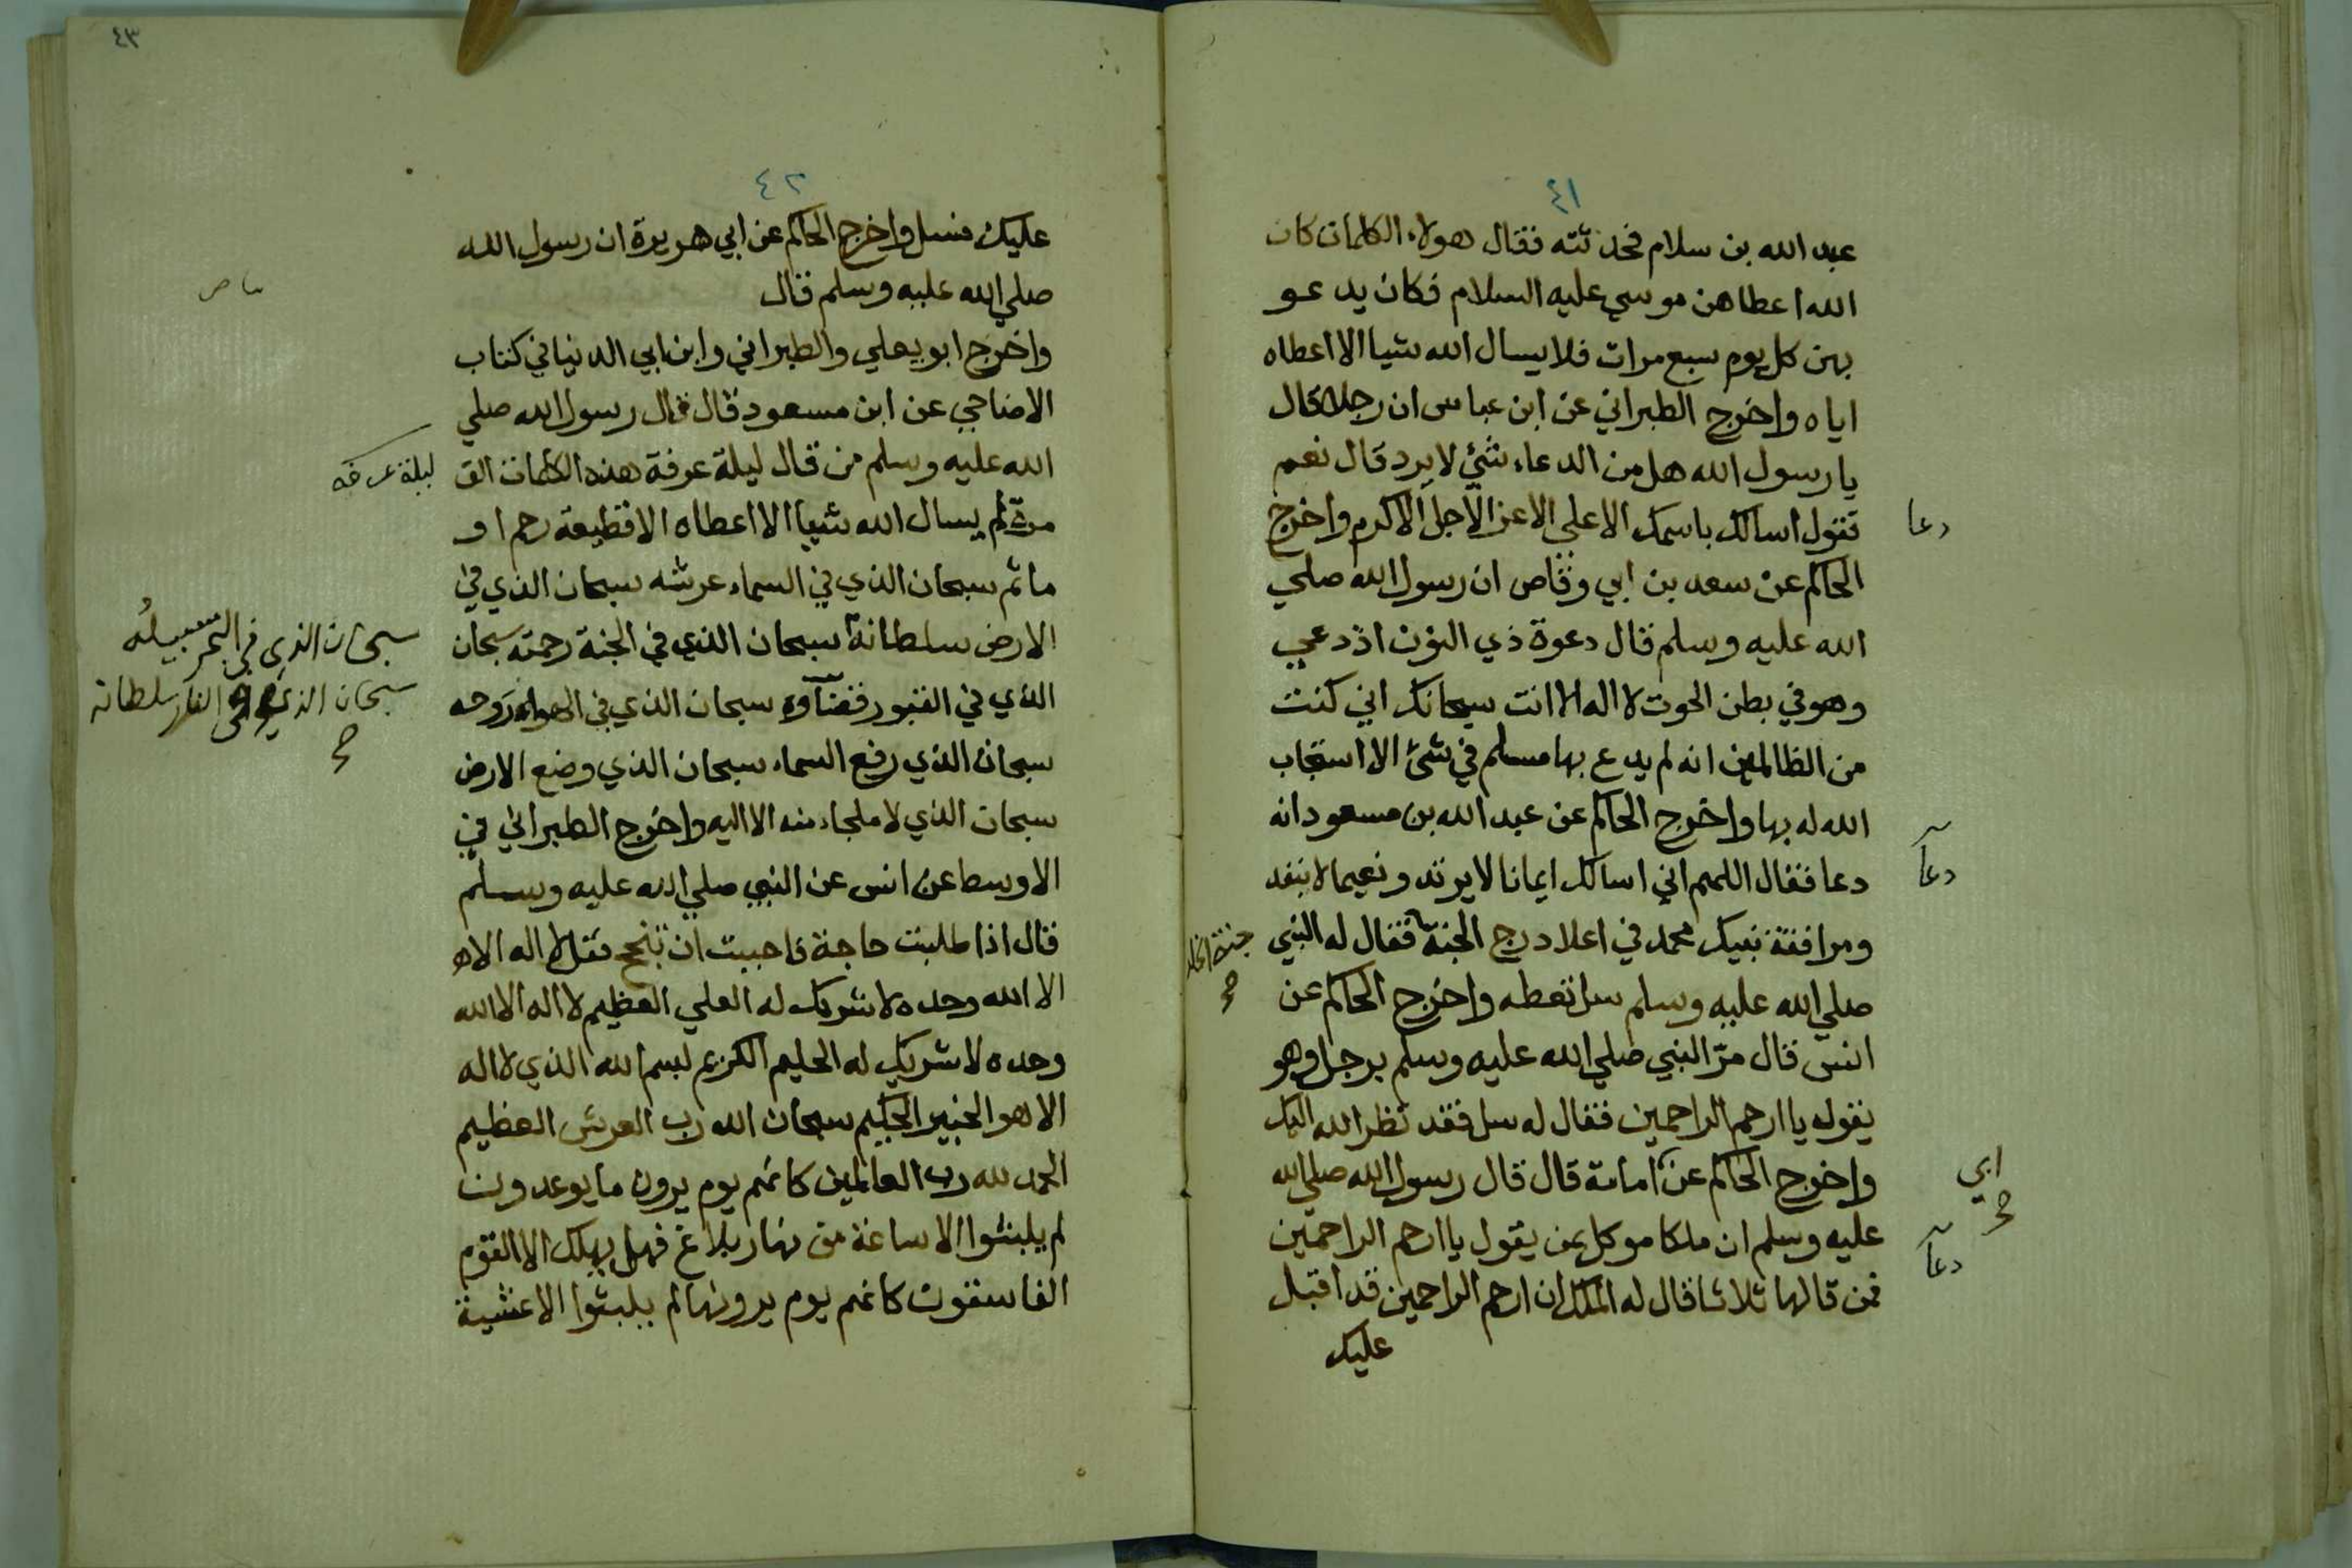 ٤١
عبد الله بن سلام فحدثته فقال هولاء الكلمات كان
الله اعطاهن موسي عليه السلام فكان يدعو
بهن كل يوم سبع مرات فلا يسال الله شيا الا اعطاه
اياه واخرج الطبراني عن ابن عباس ان رجلا قال
يا رسول الله هل من الدعاء شئ لا يرد قال نعم
تقول اسالك باسمك الاعلي الاعز الاجل الاكرم واخرج
دعا
الحاكم عن سعد بن ابي وقاص ان رسول الله صلي
الله عليه وسلم قال دعوة ذي النون اذ دعي
وهو في بطن الحوت لا اله الا انت سبحانك اني كنت
من الظالمين انه لم يدع بها مسلم في شئ الا استجاب
الله له بها واخرج الحاكم عن عبد الله بن مسعود انه
دعا فقال اللهم اني اسالك ايمانا لا يرتد ونعيما لا ينفد
دعا
ومرافقة نبيك محمد في اعلا درج الجنة فقال له النبي
جنة الخلد
صح
صلي الله عليه وسلم سل تعطه واخرج الحاكم عن
انس قال مرّ النبي صلي الله عليه وسلم برجل وهو
يقول يا ارحم الراحمين فقال له سل فقد نظر الله اليك
واخرج الحاكم عن امامة قال قال رسول الله صلي الله
ابي
صح
عليه وسلم ان ملكا موكل بمن يقول يا ارحم الراحمين
دعا
فمن قالها ثلاثا قال له الملك ان ارحم الراحمين قد اقبل
عليك
٤٣
٤٢
عليك فسل واخرج الحاكم عن ابي هريرة ان رسول الله
صلي الله عليه وسلم قال
واخرج ابو يعلي والطبراني وابن ابي الدنيا في كتاب
الاضاحي عن ابن مسعود قال قال رسول الله صلي
الله عليه وسلم من قال ليلة عرفة هذه الكلمات الف
ليلة عرفه
مرة لم يسال الله شيا الا اعطاه الا قطيعة رحم او
ماثم سبحان الذي في السماء عرشه سبحان الذي في
الارض سلطانه سبحان الذي في الجنة رحمته سبحان
سبحان الذي في البحر سبيله
سبحان الذي في النار سلطانه
صح
الذي في القبور قضاؤه سبحان الذي في الهواء روحه
سبحان الذي رفع السماء سبحان الذي وضع الارض
سبحان الذي لا ملجاء منه الا اليه واخرج الطبراني في
الاوسط عن انس عن النبي صلي الله عليه وسلم
قال اذا طلبت حاجة فاحببت ان تنجح فقل لا اله الا
الا الله وحده لا شريك له العلي العظيم لا اله الا الله
وحده لا شريك له الحليم الكريم بسم الله الذي لا اله
الا هو الخبير الحكيم سبحان الله رب العرش العظيم
الحمد لله رب العالمين كانهم يوم يرون ما يوعدون
لم يلبثوا الا ساعة من نهار بلاغ فهل يهلك الا القوم
الفاسقون كانهم يوم يرونها لم يلبثوا الا عشية